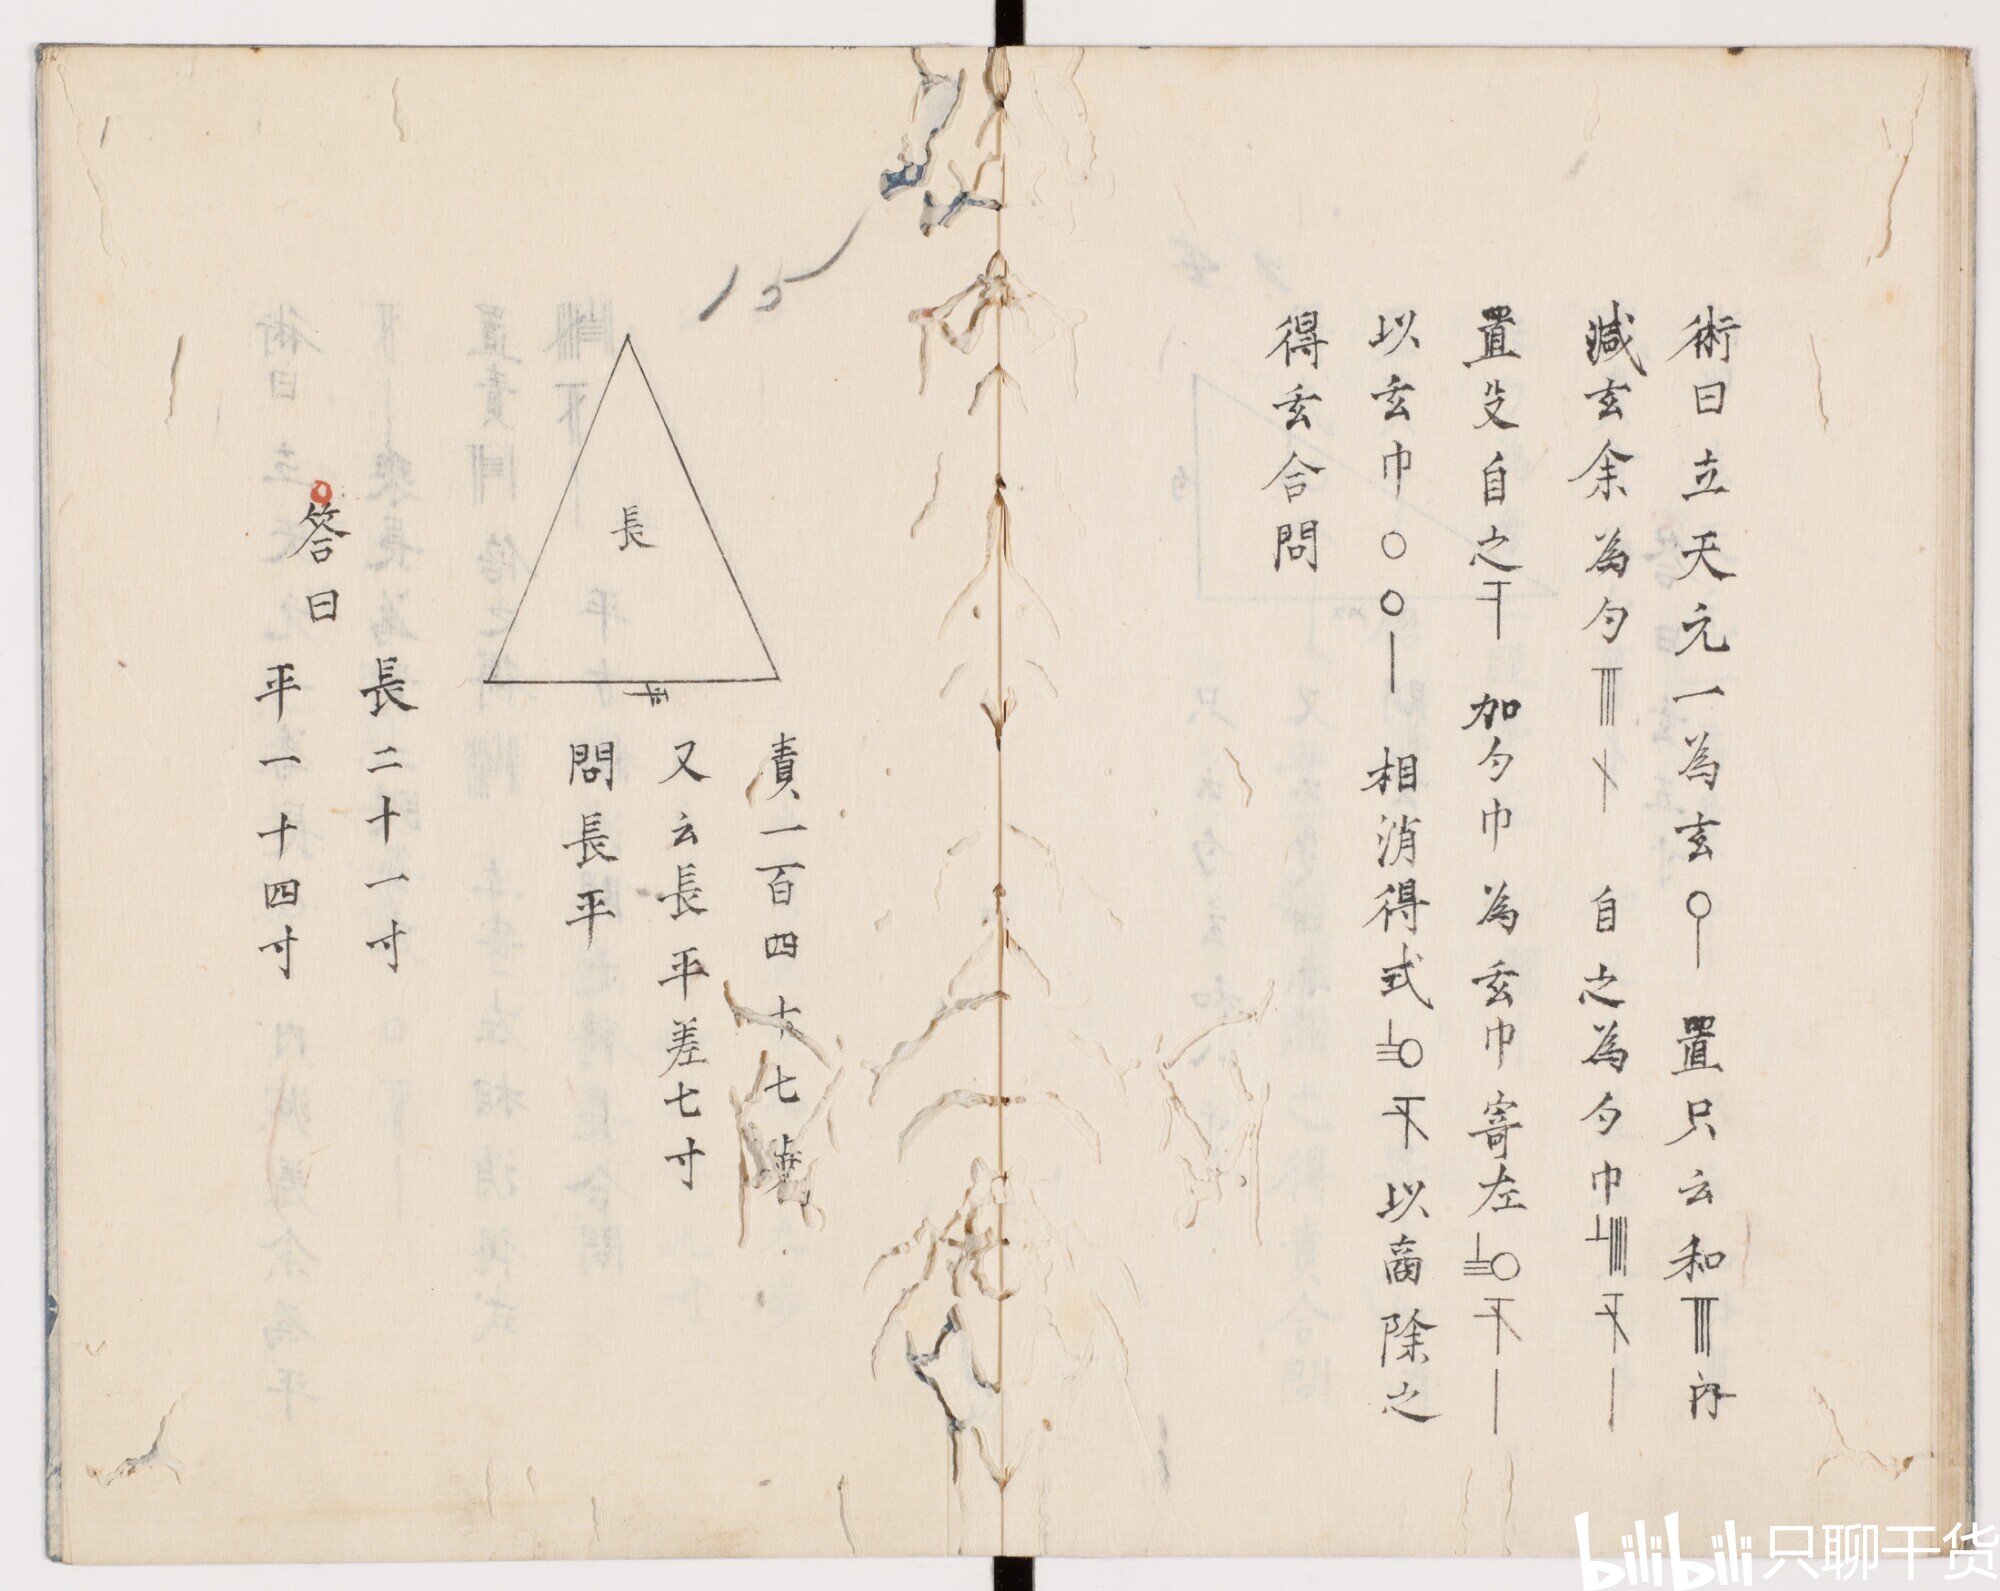 術曰立天元一為玄〇｜置只云和𝍧内
减玄余為勾𝍧〵自之為勾巾
置殳自之〒加勾巾為玄巾寄左
以玄巾〇〇｜相消得式以商除之
得玄合問
15
長
平
責一百四十七歩
又云長平差七寸
問長平
答曰
長二十一寸
平一十四寸
bilibili 只聊干货